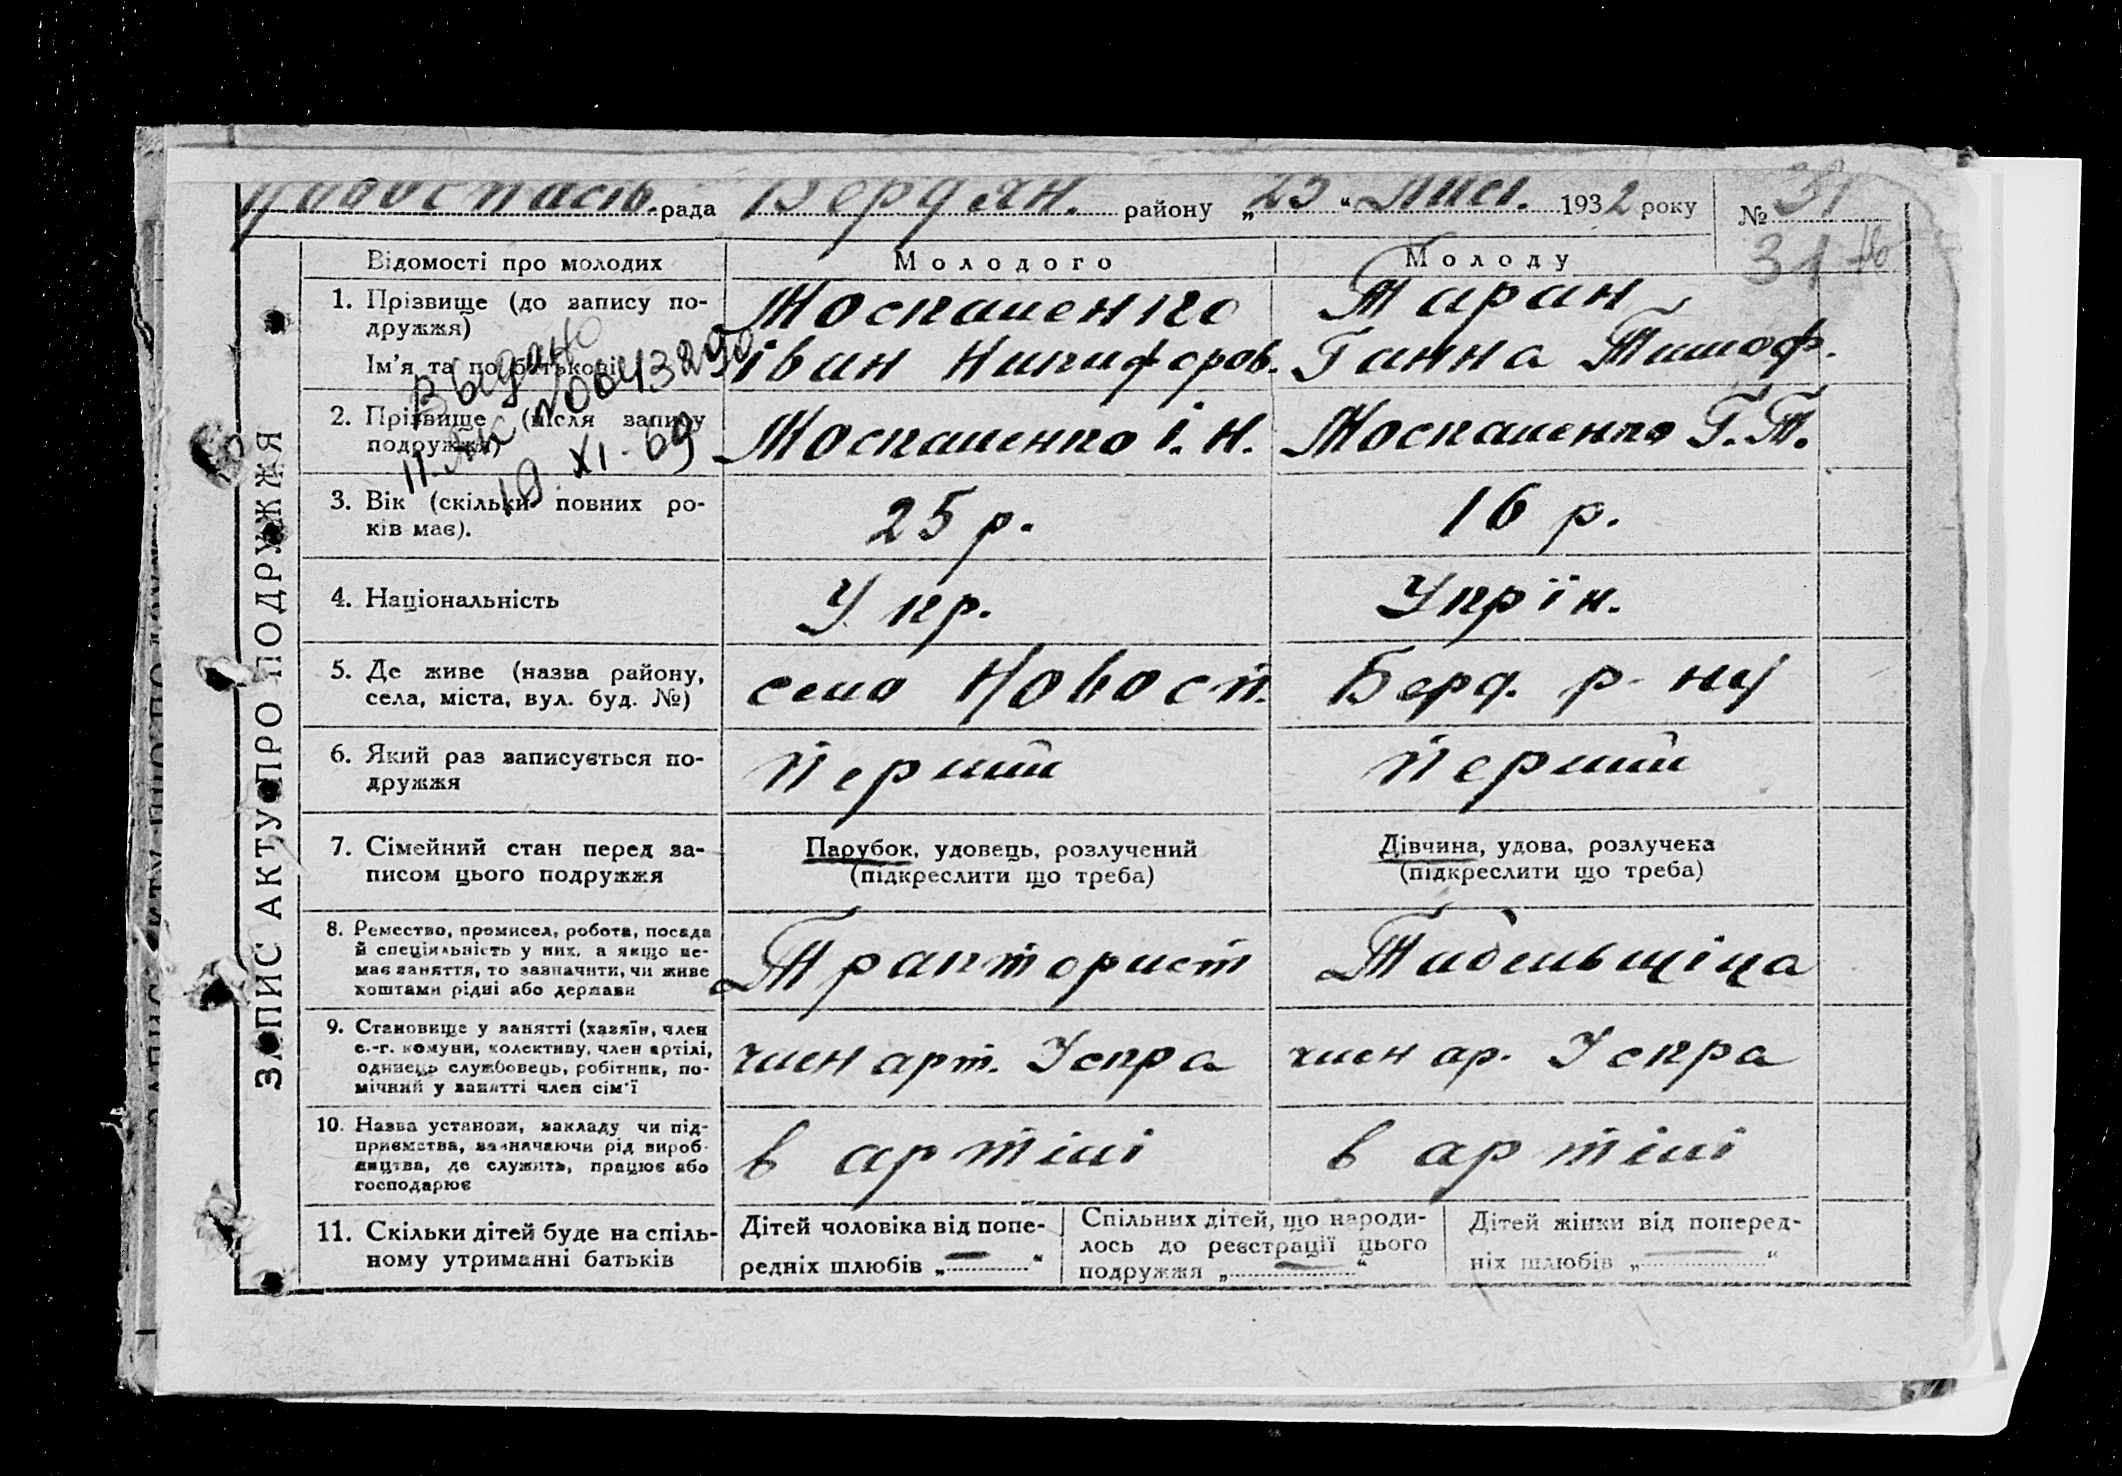 Новоспасів. рада Бердян. району „23“ Лист. 1932 року № 31
31
ЗАПИС АКТУ ПРО ПОДРУЖЖЯ
Відомості про молодих Молодого Молоду
1. Прізвище (до запису по-
дружжя)
Москаленко Таран
Ім'я та по батькові
Іван Никифоров. Ганна Тимоф.
Выдано
II. АК №0043290
19. XI. 69
2. Прізвище (після запису
подружжя)
Москаленко І. Н. Москаленко Г. Т.
3. Вік (скільки повних ро-
ків має).
25 р. 16 р.
4. Національність Укр. Украін.
5. Де живе (назва району,
села, міста, вул. буд. №)
село Новосп. Берд. р-ну
6. Який раз записується по-
дружжя
Перший Перший
7. Сімейний стан перед за-
писом цього подружжя
Парубок, удовець, розлучений
(підкреслити що треба)
Дівчина, удова, розлучена
(підкреслити що треба)
8. Ремество, промисел, робота, посада
й спеціяльність у них, а якщо не-
має заняття, то зазначити, чи живе
коштами рідні або держави
Тракторист Табельщіца
9. Становище у занятті (хазяїн, член
с.-г. комуни, колективу, член артілі,
одинець службовець, робітник, по-
мічний у занятті член сім'ї
член арт. Іскра член ар. Іскра
10. Назва установи, закладу чи під-
приємства, зазначаючи рід вироб-
ництва, де служить, працює або
господарює
в артілі в артілі
11. Скільки дітей буде на спіль-
ному утриманні батьків
Дітей чоловіка від попе-
редніх шлюбів „—“
Спільних дітей, що народи-
лось до реєстрації цього
подружжя „—“
Дітей жінки від поперед-
ніх шлюбів „—“